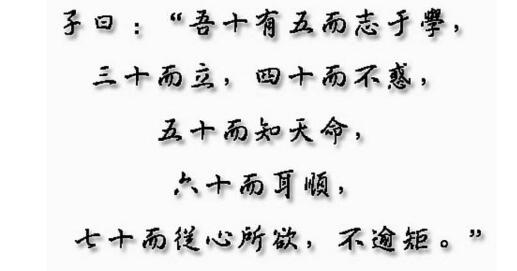 子曰：“吾十有五而志于學，
三十而立，四十而不惑，
五十而知天命，
六十而耳順，
七十而從心所欲，不逾矩。”